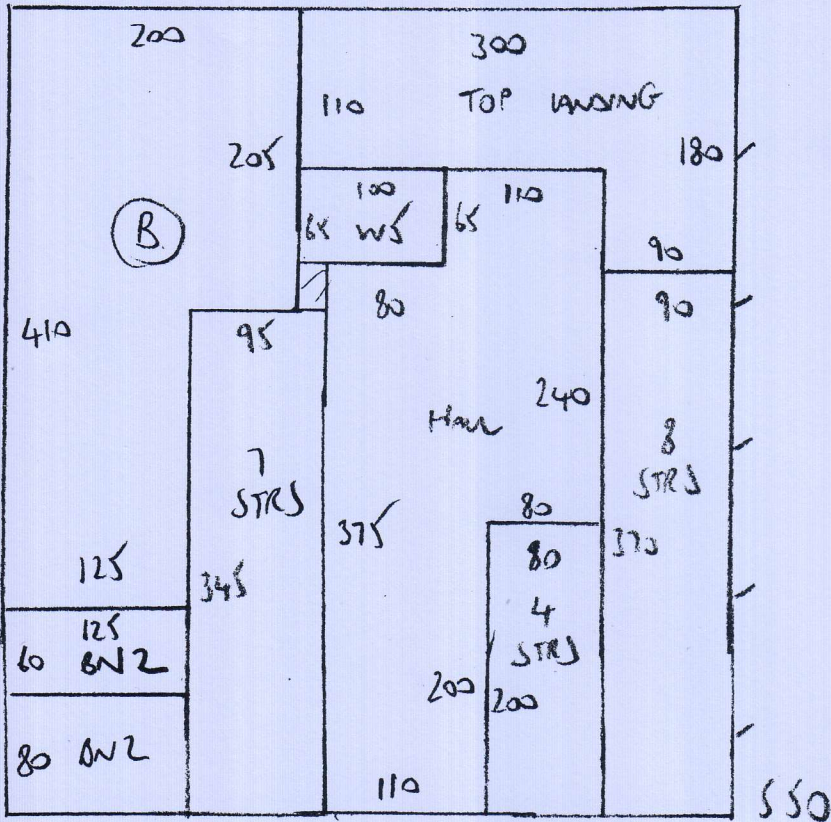 200
300
110
TOP LANDING
205
180
100
110
65 W5
65
B
90
80
90
410
95
240
HALL
7
STRS
8
STRS
80
375
370
80
125
345
4
STRS
125
60 BN2
200
200
80 BN2
110
550